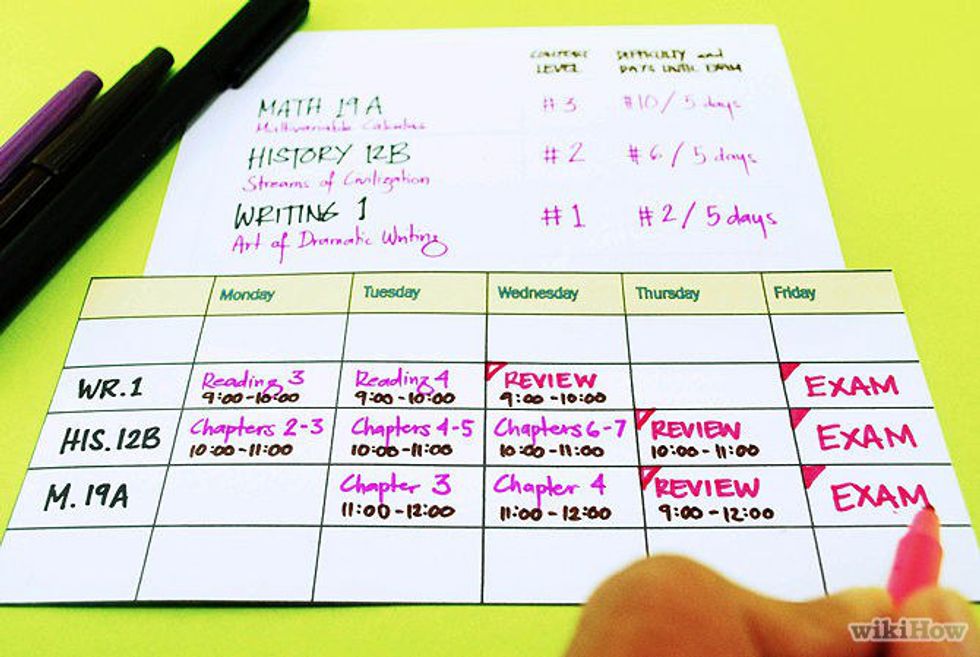 CONTENT LEVEL DIFFICULTY and DAYS UNTIL EXAM
MATH 19A #3 #10/5 days
Multivariable Calculus
HISTORY 12B #2 #6/5 days
Streams of Civilization
WRITING 1 #1 #2/5 days
Art of Dramatic Writing
Monday Tuesday Wednesday Thursday Friday
WR.1 Reading 3 Reading 4 REVIEW EXAM
9:00-10:00 9:00-10:00 9:00-10:00
HIS.12B Chapters 2-3 Chapters 4-5 Chapters 6-7 REVIEW EXAM
10:00-11:00 10:00-11:00 10:00-11:00 10:00-11:00
M.19A Chapter 3 Chapter 4 REVIEW EXAM
11:00-12:00 11:00-12:00 9:00-12:00
wikiHow